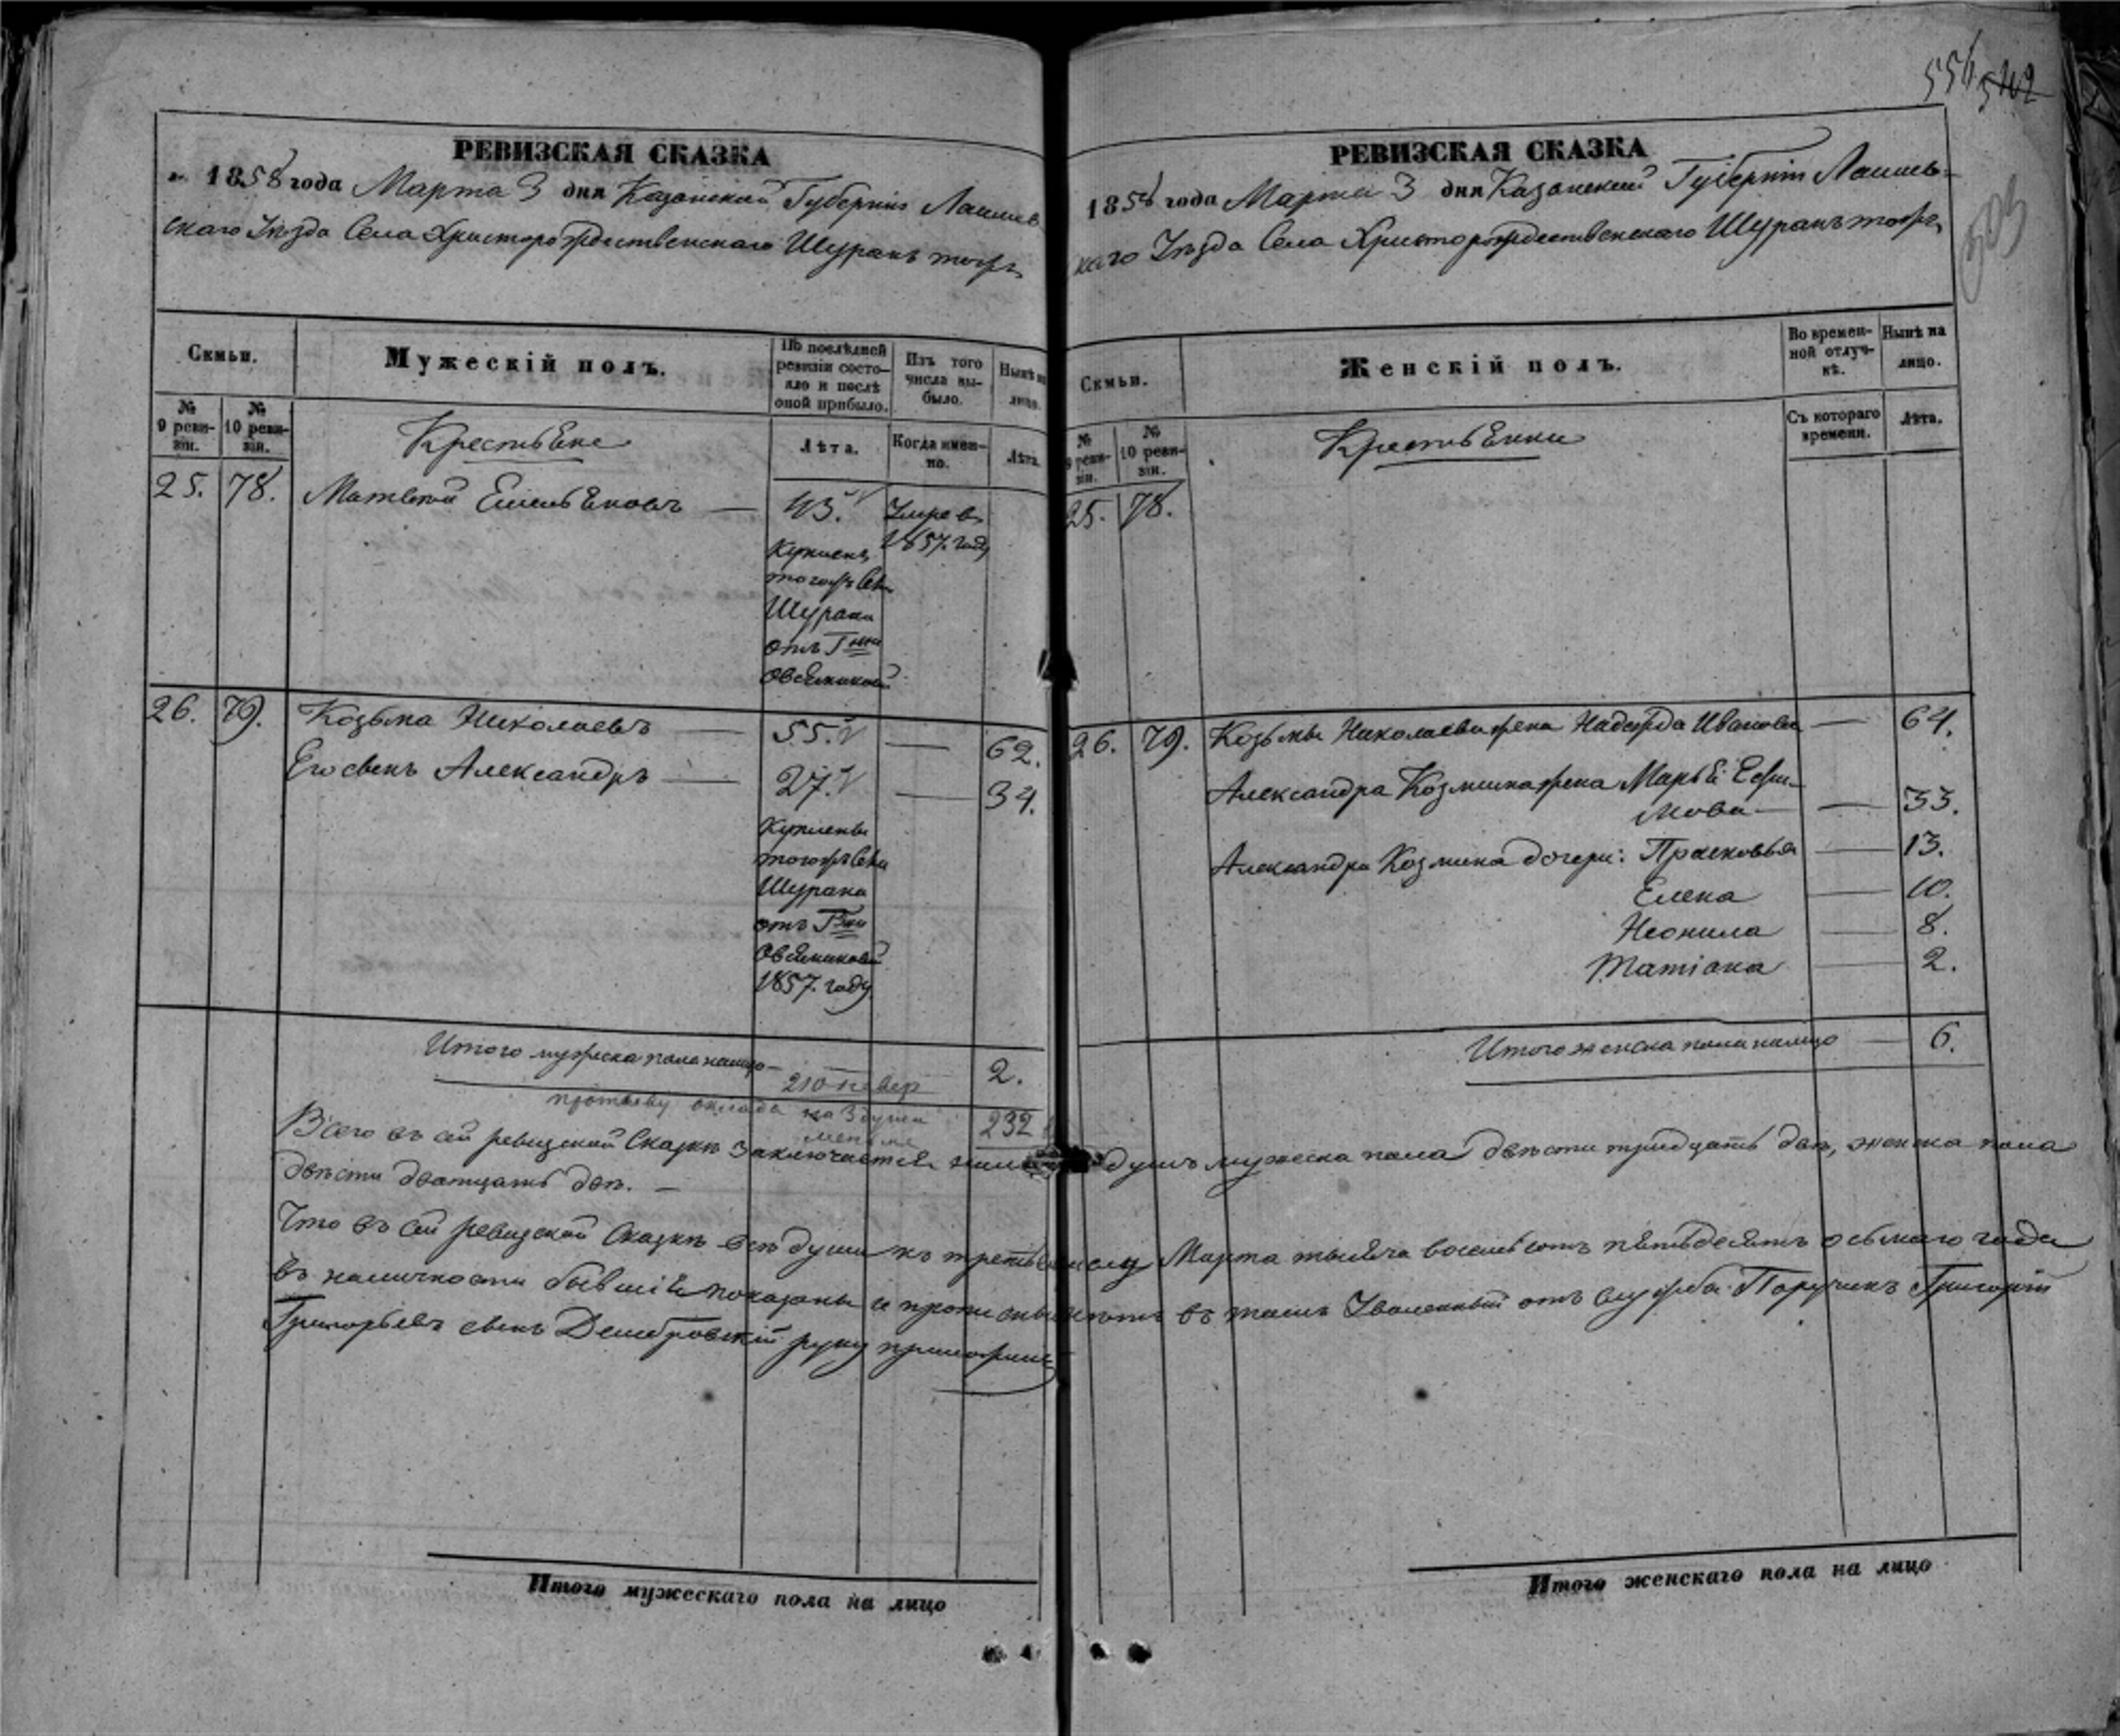 556 542
503
РЕВИЗСКАЯ СКАЗКА
1858 года Марта 3 дня Казанской Губерніи Лаишев
скаго Уѣзда Села Христорождественскаго Шуранъ тожъ
Семьи.
Мужескій полъ.
По послѣдней ревизіи состояло и послѣ оной прибыло.
Изъ того числа выбыло.
Нынѣ на лицо.
№ 9 ревизіи.
№ 10 ревизіи.
Крестьяне
Лѣта.
Когда именно.
Лѣта.
25. 78. Матвей Емельяновъ — 43. Умре в
1857. году
Куплен
тогожъ Села
Шурана
отъ Г-жи
Овсяниковой
26. 79. Козьма Николаевъ — 55. — 62.
Его сынъ Александръ — 27. — 34.
Куплены
тогожъ Села
Шурана
отъ Г-жи
Овсяниковой
1857. году
Итого мужеска пола налицо — 2.
210
противу оклада на 3 души
менѣе
232
РЕВИЗСКАЯ СКАЗКА
1858 года Марта 3 дня Казанской Губерніи Лаишев-
скаго Уѣзда Села Христорождественскаго Шуранъ тожъ
Семьи.
Женскій полъ.
Во временной отлучкѣ.
Нынѣ на лицо.
№ 9 ревизіи.
№ 10 ревизіи.
Крестьянки
Съ котораго времени.
Лѣта.
25. 78.
26. 79. Козьмы Николаева жена Надежда Иванова — 64.
Александра Козмина жена Марья Ефи-
мова — 33.
Александра Козмина дочери: Прасковья — 13.
Елена — 10.
Неонила — 8.
Татіана — 2.
Итого женска пола налицо — 6.
Всего въ сей ревизской Сказкѣ заключается налицо душъ мужеска пола двѣсти тридцать двѣ, женска пола
двѣсти дватцать двѣ. —
Что въ сей ревизской Сказкѣ всѣ души къ третьему числу Марта тысяча восемьсотъ пятьдесятъ осьмаго года
въ наличности бывшія показаны и прописныхъ нѣтъ въ томъ Уволенный отъ службы Поручикъ Григорій
Григорьевъ сынъ Дембровскій руку приложилъ
Итого мужескаго пола на лицо
Итого женскаго пола на лицо